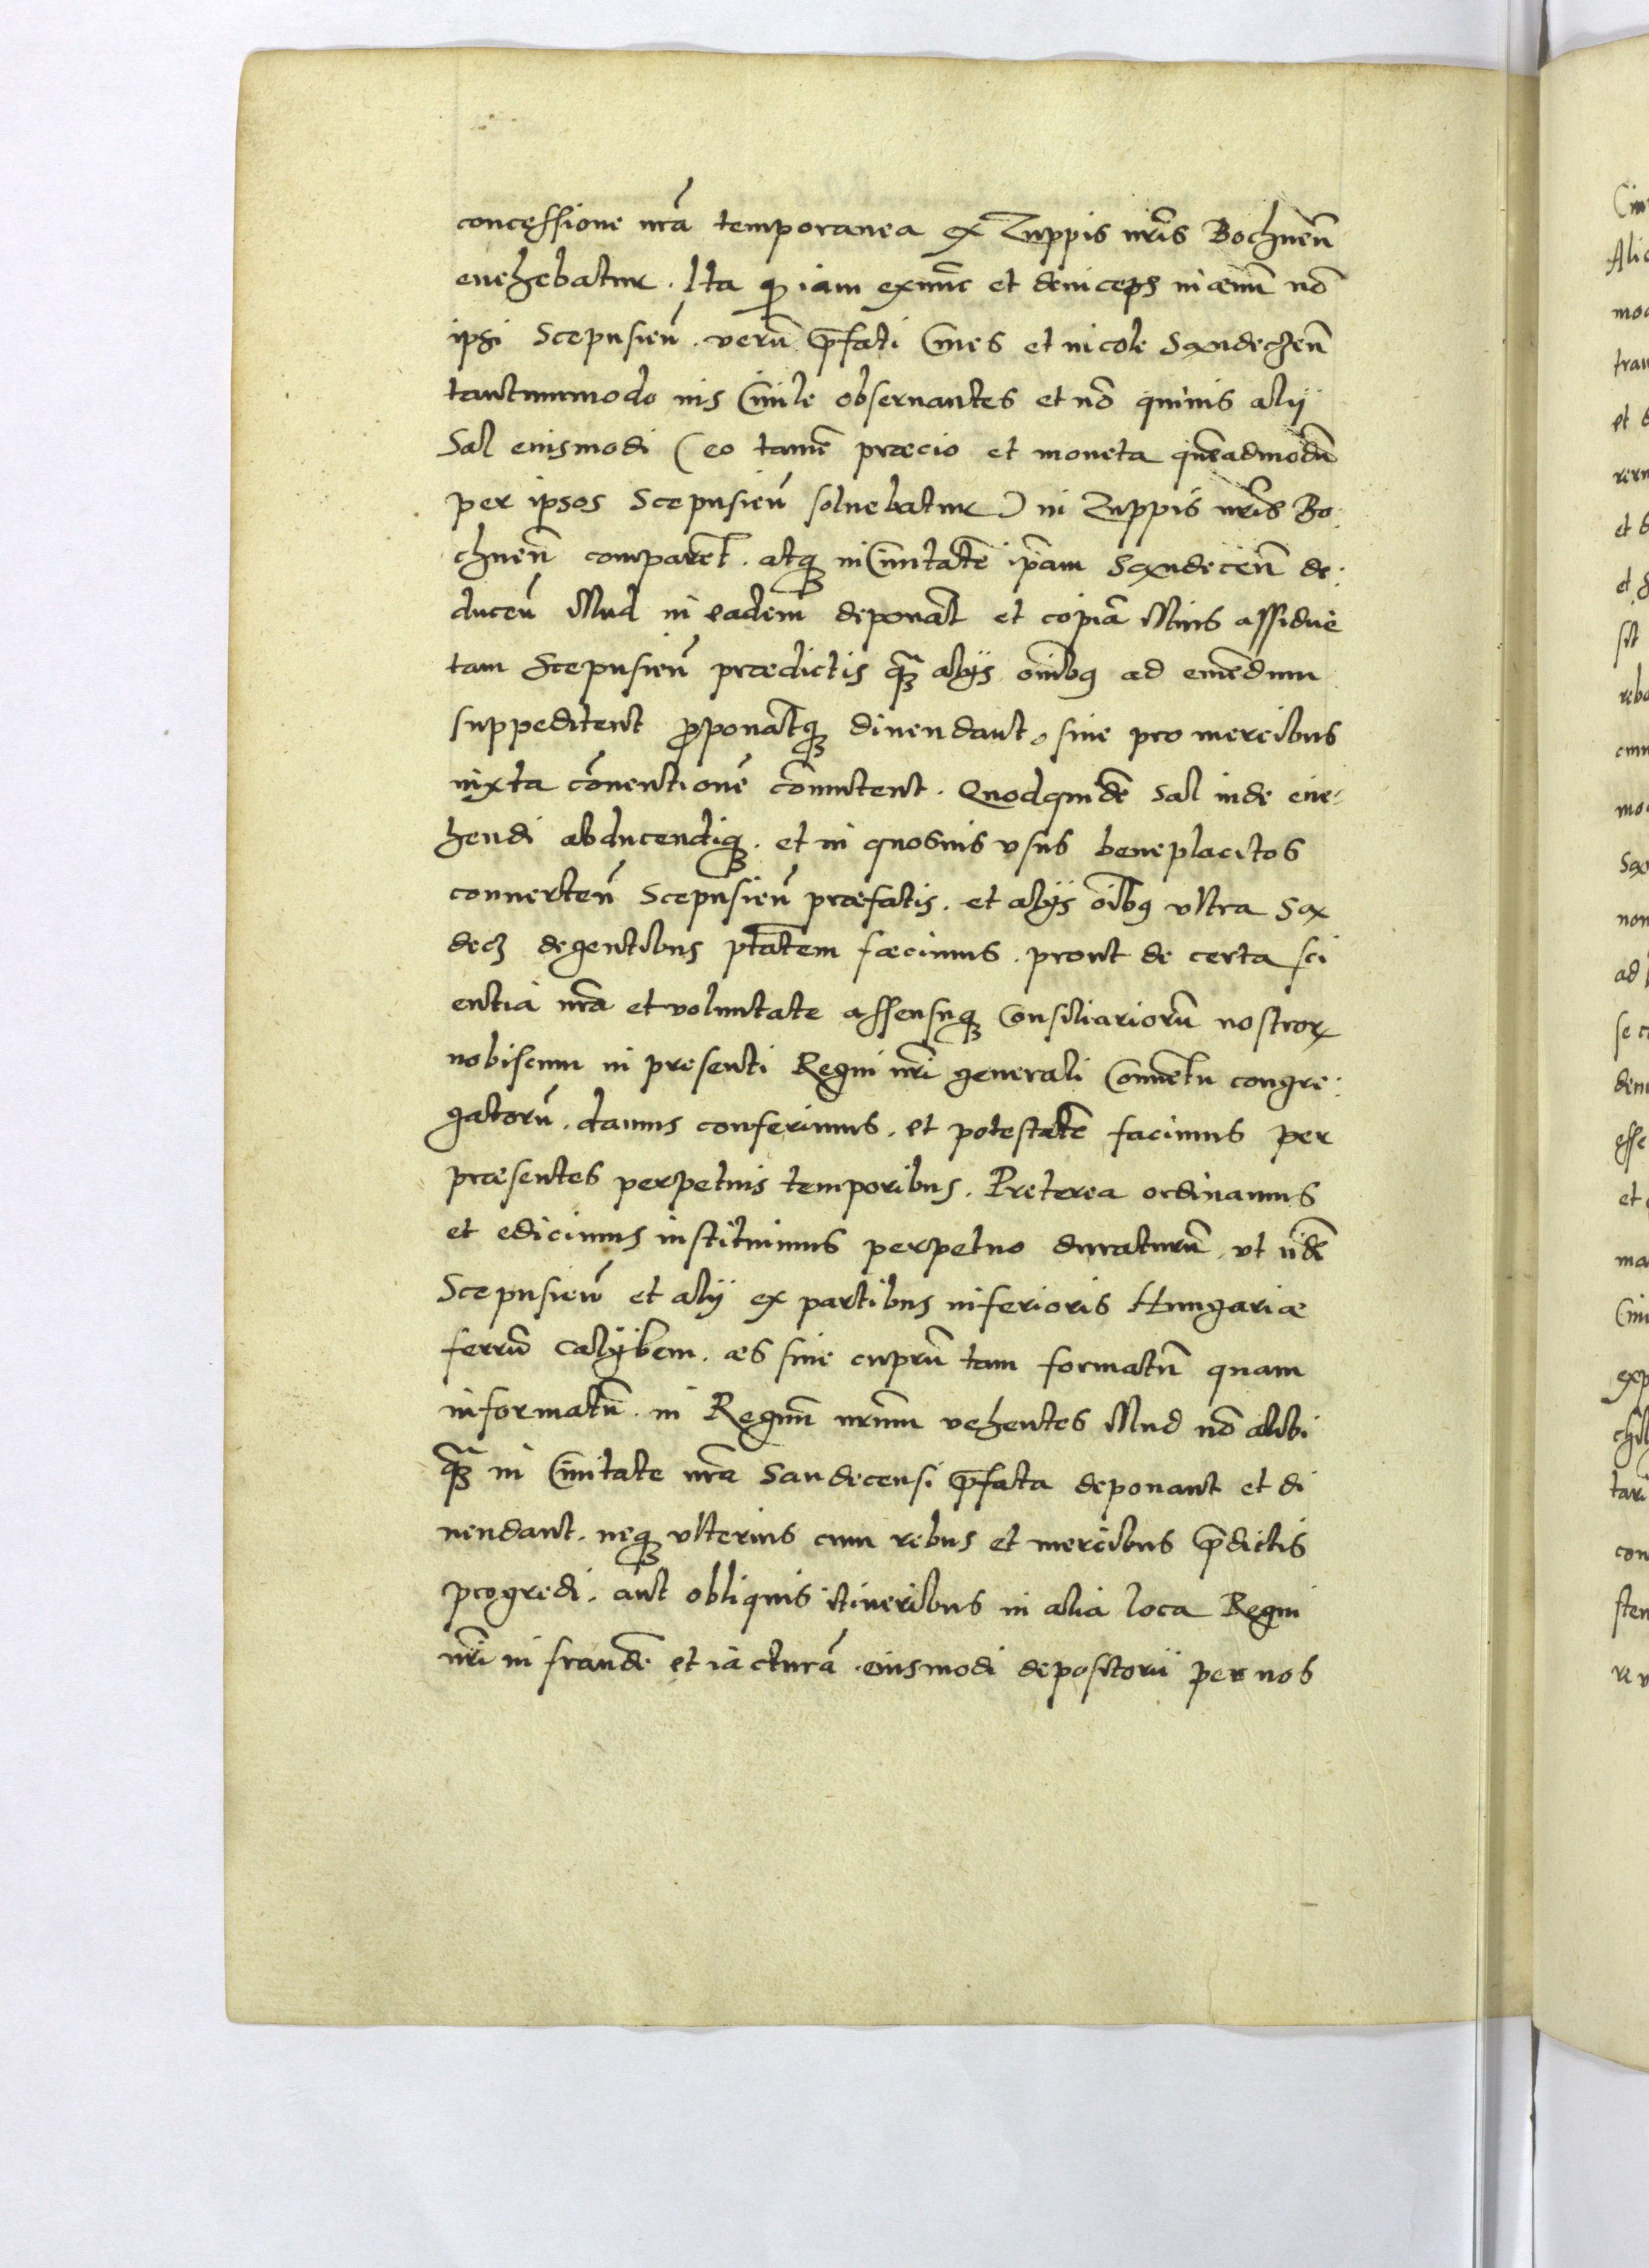 concessione nrã temporanea ex Zuppis nr̃is Bochneñ
euehebatur. Ita qꝫ iam exnũc et deinceps in æuũ nõ
ipsi Scepusieñ. verũ p̃fati Ciues et incole Sandecheñ
tantummodo ius Ciuile obseruantes et nõ quiuis alij
Sal eiusmodi (eo tamẽ præcio et moneta quẽadmodũ
per ipsos Scepusieñ soluebatur) in Zuppis nr̃is Bo:
chneñ comparẽt. atqꝫ in Ciuitatẽ ip̃am Sandeceñ de:
duceñ illud in eadem deponãt et copiã illius assidue
tam Scepusieñ prædictis qꝫ̃ alijs oĩbꝰ ad emẽdum
suppeditent p̃ponãtqꝫ diuendant, siue pro mercibus
iuxta cõuentionẽ cõmutent. Quodquidẽ Sal inde eue:
hendi abducendiqꝫ. et in quosuis vsus beneplacitos
conuerteñ Scepusieñ præfatis. et alijs oĩbꝰ vltra San
decꝫ degentibus ptãtem facimus. prout de certa sci
entia nrã et voluntate assensuqꝫ Consiliariorũ nostroꝝ
nobiscum in presenti Regni nr̃i generali Conuẽtu congre:
gatorũ. damus conferimus. et potestatẽ facimus per
præsentes perpetuis temporibus. Preterea ordinamus
et edicimus instituimus perpetuo duraturũ. vt ijdẽ
Scepusieñ et alij ex partibus inferioris Hungariæ
ferrũ calijbem. æs siue cuprũ tam formatũ quam
informatũ. in Regnũ nrũm vehentes illud nõ alibi
qꝫ̃ in Ciuitate nrã Sandecensi p̃fata deponant et di
uendant. neqꝫ vlterius cum rebus et mercibus p̃dictis
progredi. aut obliquis itineribus in alia loca Regni
nr̃i in fraudẽ et iacturã eiusmodi depositorij per nos